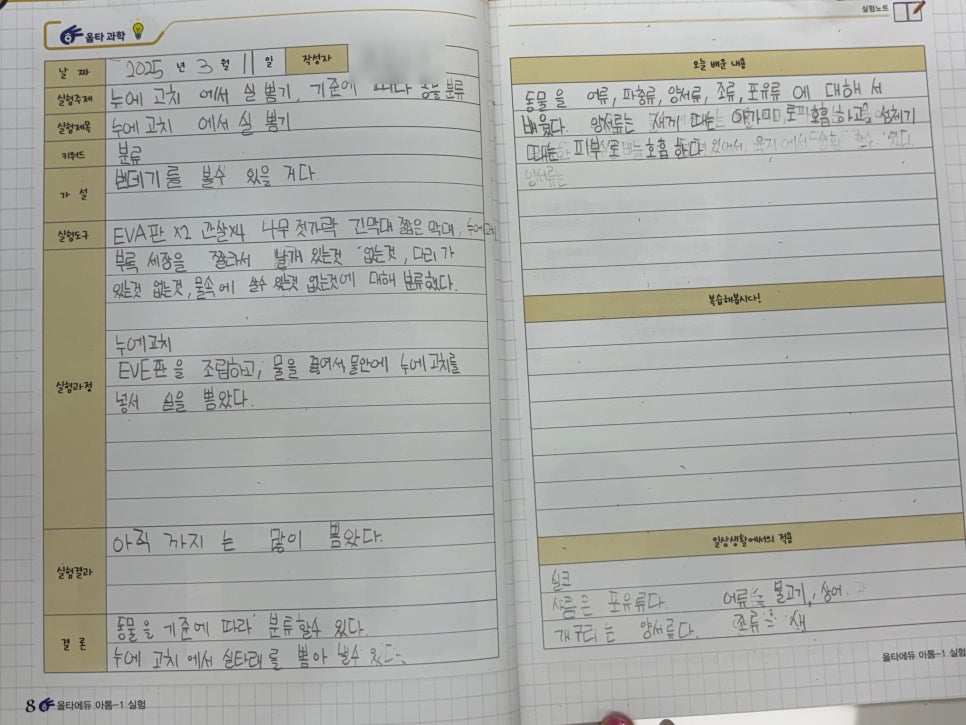 올타 과학
날 짜 2025 년 3 월 11 일 작성자
실험주제 누에 고치 에서 실 뽑기, 기준에 따라 동물 분류
실험제목 누에 고치 에서 실 뽑기
키워드 분류
가 설 번데기를 볼수 있을 거다.
실험도구 EVA판 X2 X4 나무 젓가락 긴막대 짧은 막대, 누에고치
실험과정
부록 세장을 잘라서 날개 있는것 없는것, 다리가
있는것 없는것, 물속에 살수 있는것 없는것에 대해 분류했다.
누에고치
EVE판을 조립하고, 물을 끓여서, 물안에 누에고치를
넣서 실을 뽑았다.
실험결과 아직 까지 는 많이 뽑았다.
결 론
동물을 기준에 따라 분류할수 있다.
누에 고치에서 실타래를 뽑아 낼수 있다.
8 올타에듀 아톰-1 실험
실험노트
오늘 배운 내용
동물을 어류, 파충류, 양서류, 조류, 포유류 에 대해 서
배웠다. 양서류는 새끼 때는 아가미로 호흡하고, 성체기
때는 피부로 호흡 한다.
양서류는
복습해봅시다!
일상생활에서의 적용
실크
사람은 포유류다. 어류는 물고기, 상어
개구리는 양서류다. 조류는 새
올타에듀 아톰-1 실험